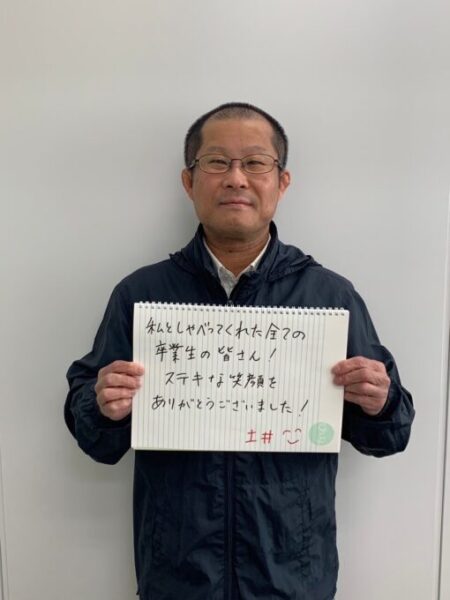 私としゃべってくれた全ての
卒業生の皆さん!
ステキな笑顔を
ありがとうございました!
土井